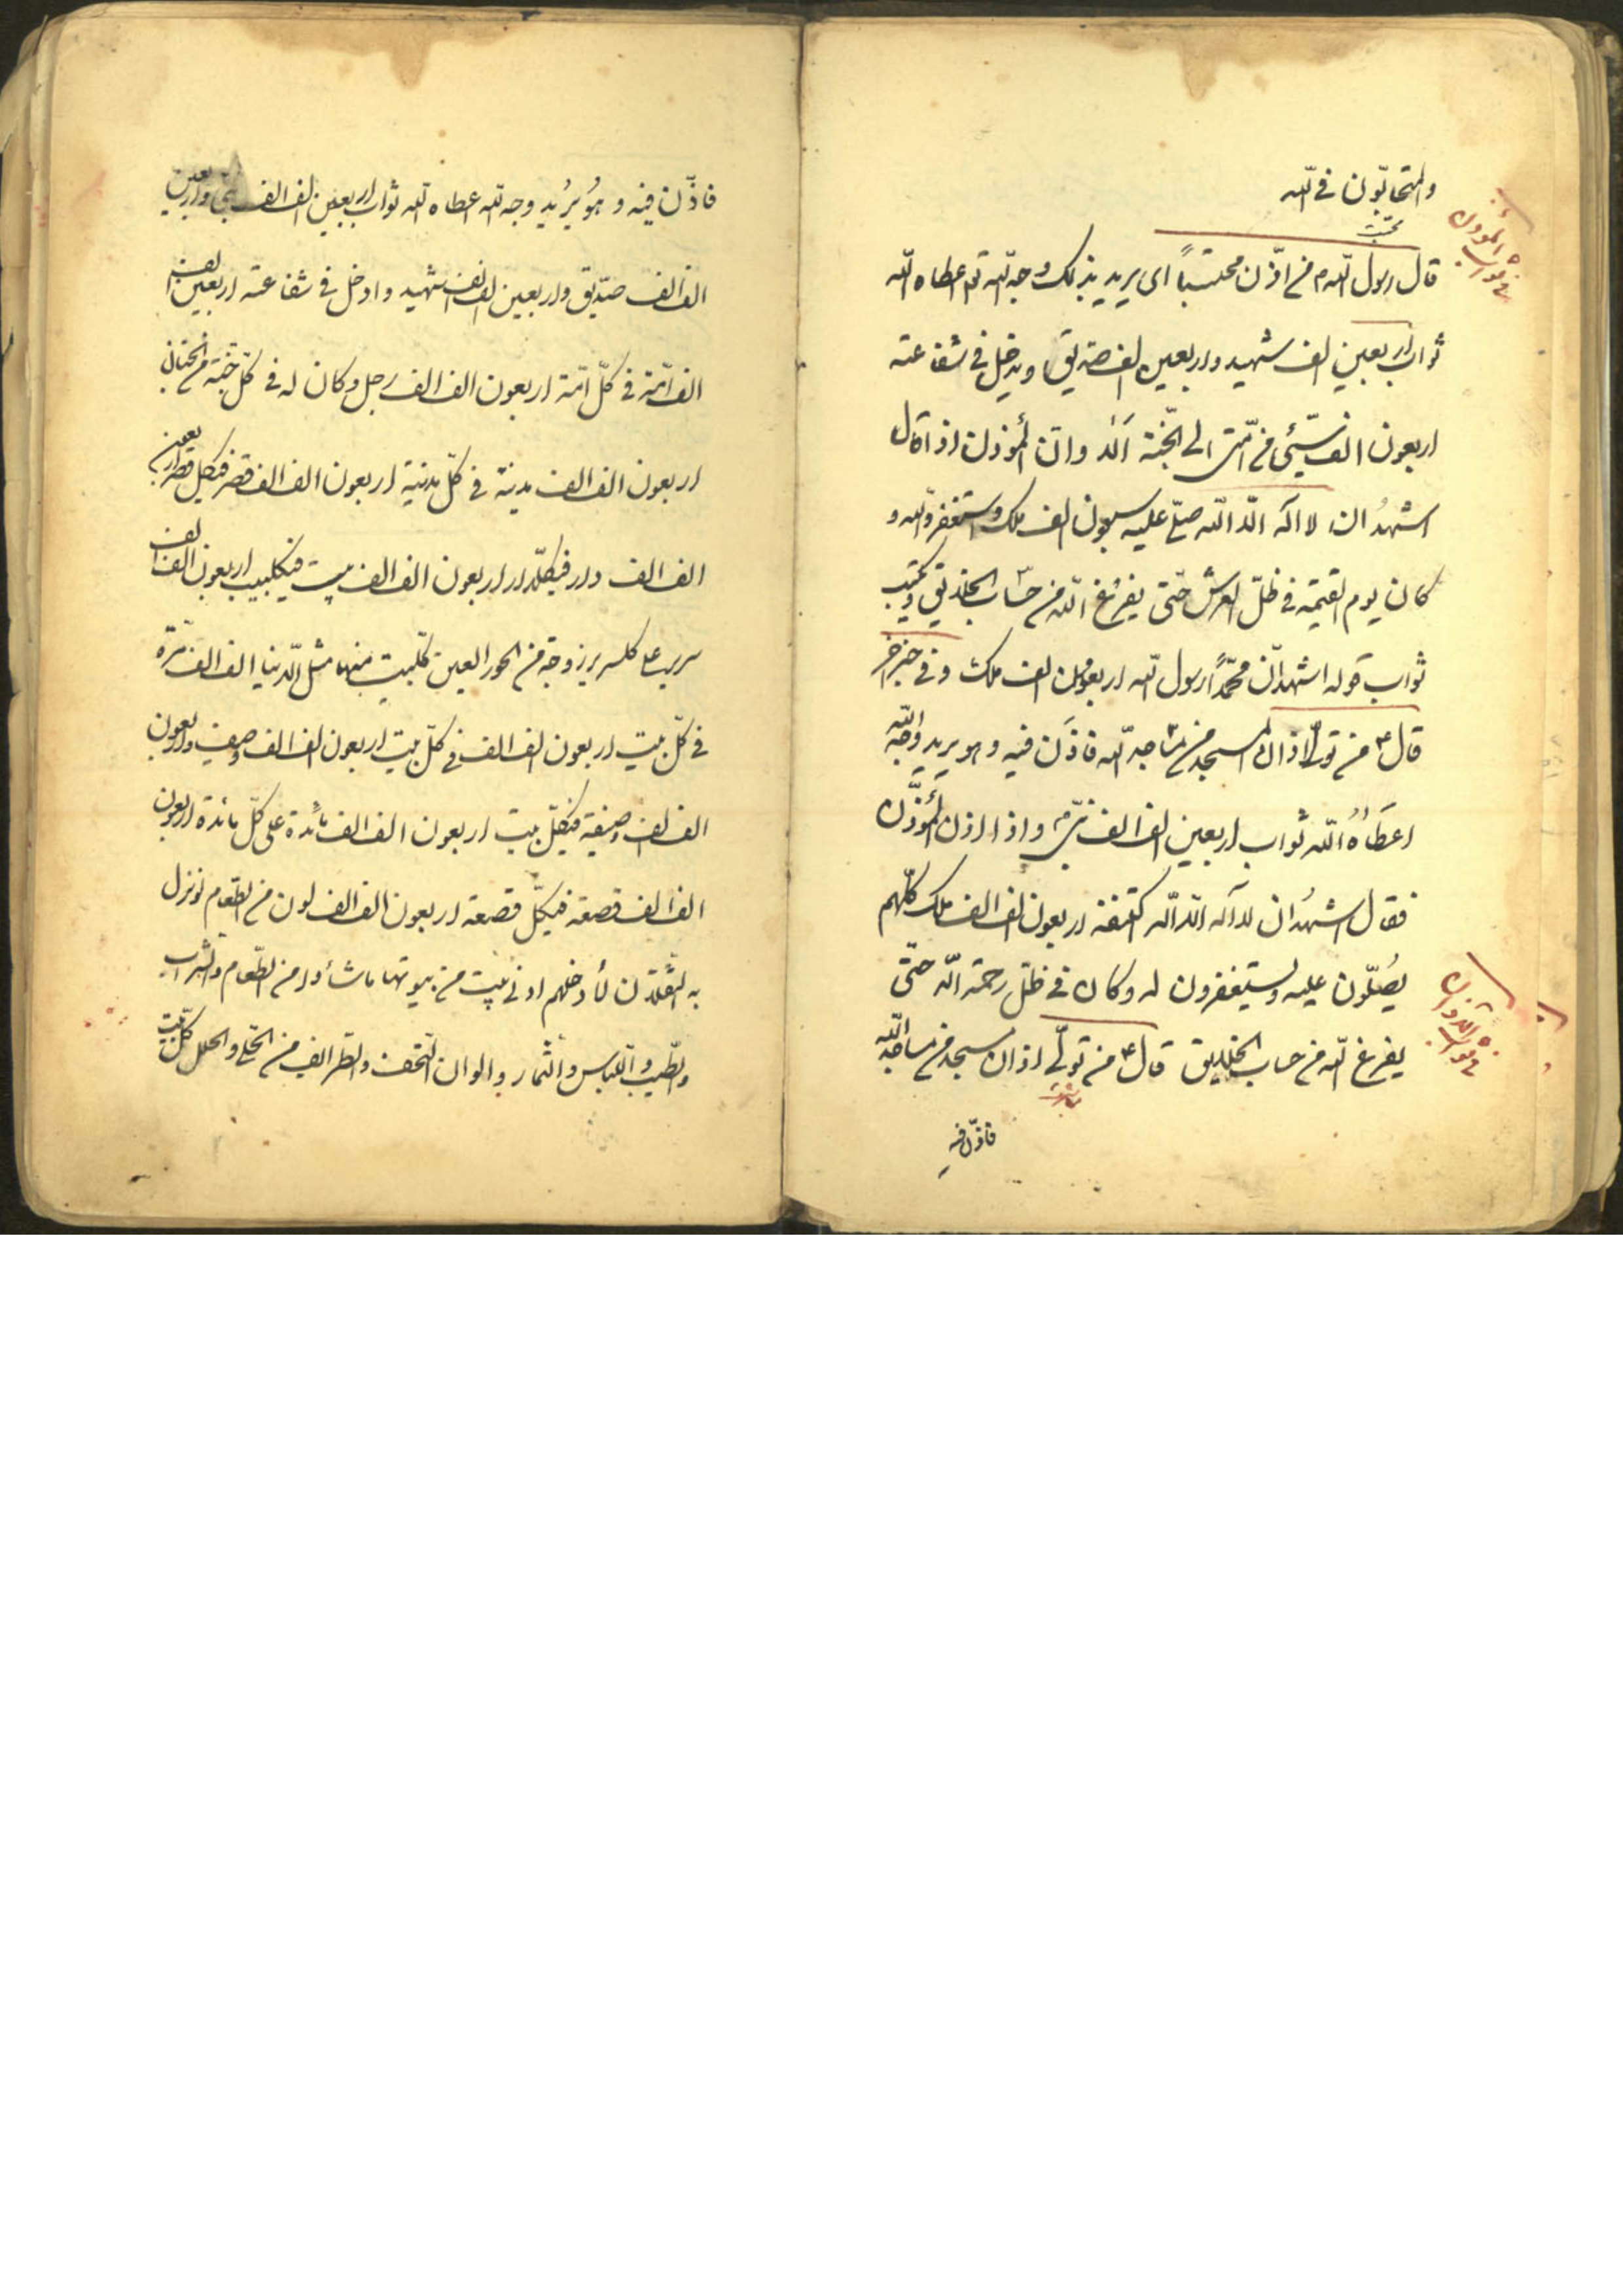 والمتحابّون فی الله
قال رسول الله م من اذّن محتسباً ای یرید بذلک وجه الله تع اعطاه الله
ثواب اربعین الف شهید واربعین الف صدیق ویدخل فی شفاعته
اربعون الف مسیئ من امّتی الی الجنّة الا وان المؤذن اذا قال
اشهدُ ان لا اله الّا الله صلّی علیه سبعون الف ملک واستغفروالله و
کان یوم القیمة فی ظلّ العرش حتّی یفرُغ الله من حساب الخلایق ویکتب
ثواب قوله اشهد انّ محمّداً رسول الله اربعون الف ملک وفی خبر اخر
قال ع من تولّی اذان المسجد من مساجد الله فاذَن فیه وهو یرید وجه الله
اعطَاهُ الله ثواب اربعین الف الف نبیّ واذا اذن المُؤذّن
فقال اشهدُ ان لا اله الّا الله اکتنفه اربعون الف الف ملک کلّهم
یُصَلّون علیه ویستغفرون له وکان فی ظلّ رحمة الله حتّی
یفرغ الله من حساب الخلایق قال ع من تولّی اذان مسجد من مساجد الله
فاذّن فیه
ثواب المؤذن
ثواب الاذان
فاذّن فیه وهُو یُریُد وجه الله اعطاه الله ثواب اربعین الف الف نبی واربعین
الف الف صدّیق واربعین الف الف شهید وادخل فی شفاعته اربعین الف
الف امّة فی کلّ امّة اربعون الف الف رجل وکان له فی کلّ جنّة من الجنان
اربعون الف الف مدینة فی کلّ مدینة اربعون الف الف قصر فی کل قصر اربعین
الف الف دار فی کلّ دار اربعون الف الف بیت فی کل بیت اربعون الف الف
سریر علی کل سریر زوجة من الحور العین کلّ بیت منها مثل الدّنیا الف الف مرّة
فی کلّ بیت اربعون الف الف فی کلّ بیت اربعون الف الف وصیف واربعون
الف الف وصیفة فی کلّ بیت اربعون الف الف مائدة علی کلّ مائدة اربعون
الف الف قصعة فی کلّ قصعة اربعون الف الف لون من الطّعام لو نزل
به الثّقلان لأدخلهم ادنی بیت من بیوتها ما شاؤا من الطّعام والشراب
والطّیب واللّباس والثّمار والوان التّحف والطرایف من الحلّی والحلل کلّ بیت